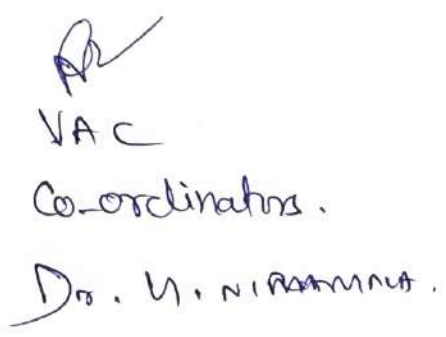 VAC
Co-ordinators.
Dr. Y. NIRAMMALA.